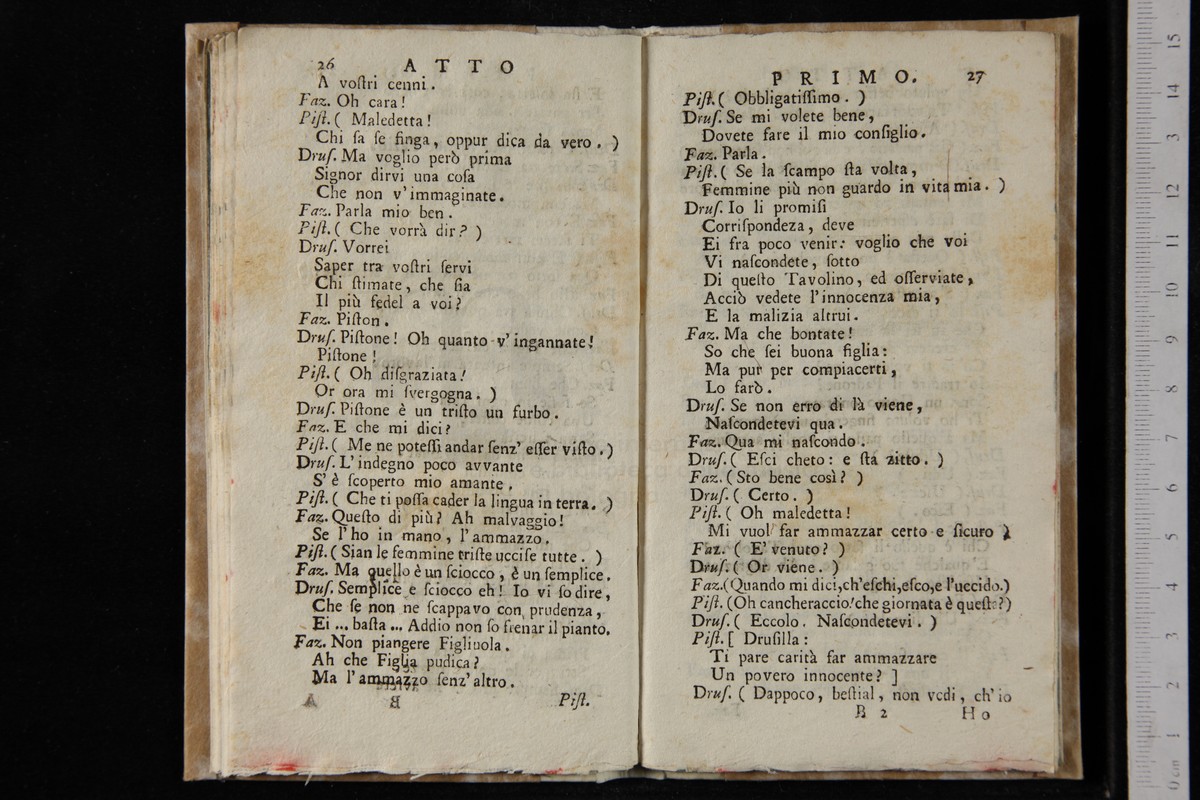 26 ATTO
A voſtri cenni.
Faz. Oh cara!
Piſt. ( Maledetta!
Chi ſa ſe finga, oppur dica da vero. )
Druſ. Ma voglio però prima
Signor dirvi una coſa
Che non v'immaginate.
Faz. Parla mio ben.
Piſt. ( Che vorrà dir? )
Druſ. Vorrei
Saper tra voſtri ſervi
Chi ſtimate, che ſia
Il più fedel a voi?
Faz. Piſton.
Druſ. Piſtone! Oh quanto v'ingannate!
Piſtone!
Piſt. ( Oh diſgraziata!
Or ora mi ſvergogna. )
Druſ. Piſtone è un triſto un furbo.
Faz. E che mi dici?
Piſt. ( Me ne poteſſi andar ſenz' eſſer viſto. )
Druſ. L'indegno poco avvante
S'è ſcoperto mio amante.
Piſt. ( Che ti poſſa cader la lingua in terra. )
Faz. Queſto di più? Ah malvaggio!
Se l'ho in mano, l'ammazzo.
Piſt. ( Sian le femmine triſte ucciſe tutte. )
Faz. Ma quello è un ſciocco, è un ſemplice.
Druſ. Semplice e ſciocco eh! Io vi ſo dire,
Che ſe non ne ſcappavo con prudenza,
Ei ... baſta ... Addio non ſo frenar il pianto.
Faz. Non piangere Figliuola.
Ah che Figlia pudica?
Ma l'ammazzo ſenz'altro.
Piſt.
PRIMO. 27
Piſt. ( Obbligatiſſimo. )
Druſ. Se mi volete bene,
Dovete fare il mio conſiglio.
Faz. Parla.
Piſt. ( Se la ſcampo ſta volta,
Femmine più non guardo in vita mia. )
Druſ. Io li promiſi
Corriſpondeza, deve
Ei fra poco venir: voglio che voi
Vi naſcondete, ſotto
Di queſto Tavolino, ed oſſerviate,
Acciò vedete l'innocenza mia,
E la malizia altrui.
Faz. Ma che bontate!
So che ſei buona figlia:
Ma pur per compiacerti,
Lo farò.
Druſ. Se non erro di là viene,
Naſcondetevi qua.
Faz. Qua mi naſcondo.
Druſ. ( Eſci cheto: e ſta zitto. )
Faz. ( Sto bene così? )
Druſ. ( Certo. )
Piſt. ( Oh maledetta!
Mi vuol far ammazzar certo e ſicuro )
Faz. ( E' venuto? )
Druſ. ( Or viene. )
Faz. (Quando mi dici, ch'eſchi, eſco, e l'uccido.)
Piſt. (Oh cancheraccio! che giornata è queſta?)
Druſ. ( Eccolo. Naſcondetevi. )
Piſt. [ Druſilla:
Ti pare carità far ammazzare
Un povero innocente? ]
Druſ. ( Dappoco, beſtial, non vedi, ch'io
B 2 Ho